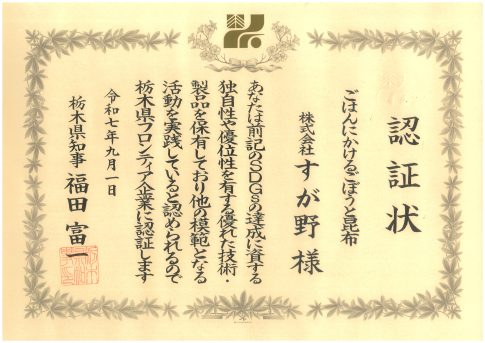 認証状
ごはんにかけるごぼうと昆布
株式会社すが野様
あなたは前記のSDGsの達成に資する
独自性や優位性を有する優れた技術・
製品を保有しており他の模範となる
活動を実践していると認められるので
栃木県フロンティア企業に認証します
令和七年九月一日
栃木県知事 福田富一